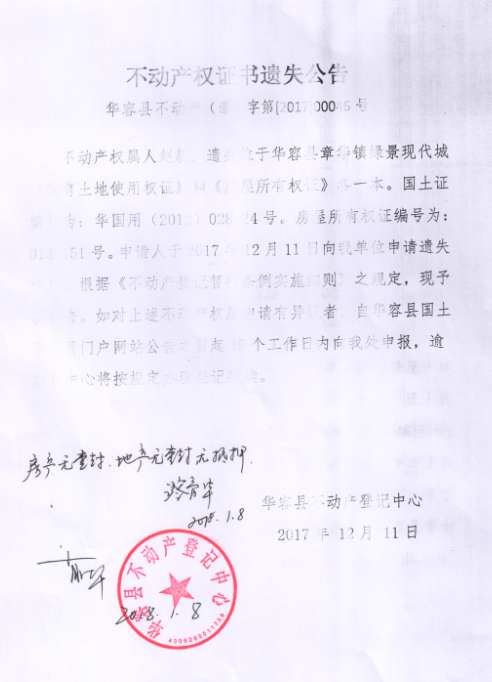 不动产权证书遗失公告
华容县不动产（遗 字第[2017]00046号
不动产权属人赵 遗失位于华容县章华镇绿景现代城
有土地使用权证》和《房屋所有权证》各一本。国土证
为：华国用（2012）028 24号。房屋所有权证编号为：
151号。申请人于2017年12月11日向我单位申请遗失
根据《不动产登记暂行条例实施细则》之规定，现予
如对上述不动产权 申请有异议者，自华容县国土
门户网站公告之 起15个工作日内向我处申报，逾
中心将按规定办理登记手续。
房产无查封、地产无查封无抵押.
2018.1.8
华容县不动产登记中心
2017年12月11日
华容县不动产登记中心
2018.1.8